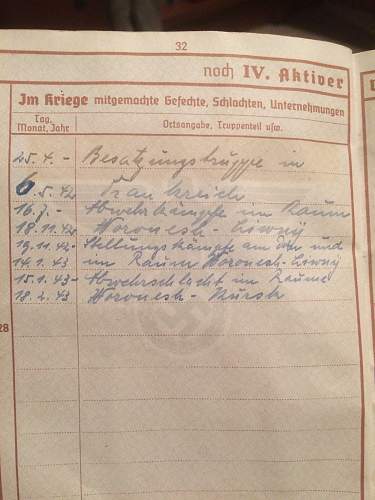 32
noch IV. Aktiver
Im Kriege mitgemachte Gefechte, Schlachten, Unternehmungen
Tag, Monat, Jahr
Ortsangabe, Truppenteil usw.
25.4. - Besatzungstruppe in
6.5.42 Frankreich
16.7. - Abwehrkämpfe im Raum
18.11.42 Woronesh - Liwnij
19.11.42 - Stellungskämpfe am Don und
14.1.43 im Raum Woronesh - Liwnij
15.1.43 - Abwehrschlacht im Raume
18.2.43 Woronesh - Kursk
28